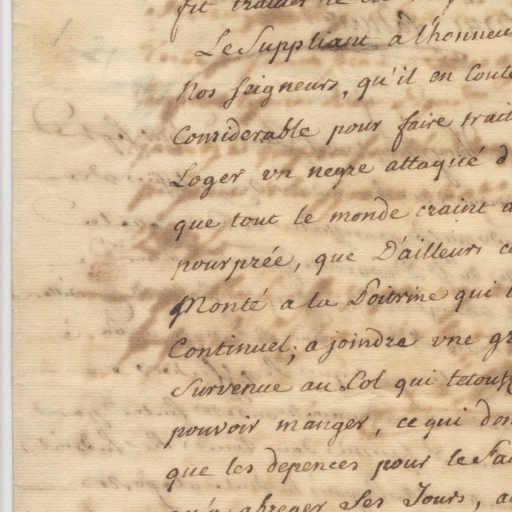 fit traiter
Le Suppliant a l'honneur
Nos seigneurs, qu'il en Coute
Considerable pour faire trait
Loger un negre attaqué d
que tout le monde craint d
pourprée, que D'ailleurs
Monté a la Poitrine qui
Continuel; a joindre une gr
Survenue au Col qui
pouvoir manger, ce qui don
que les depences pour le Fai
qu'a abreger Ses Jours, a